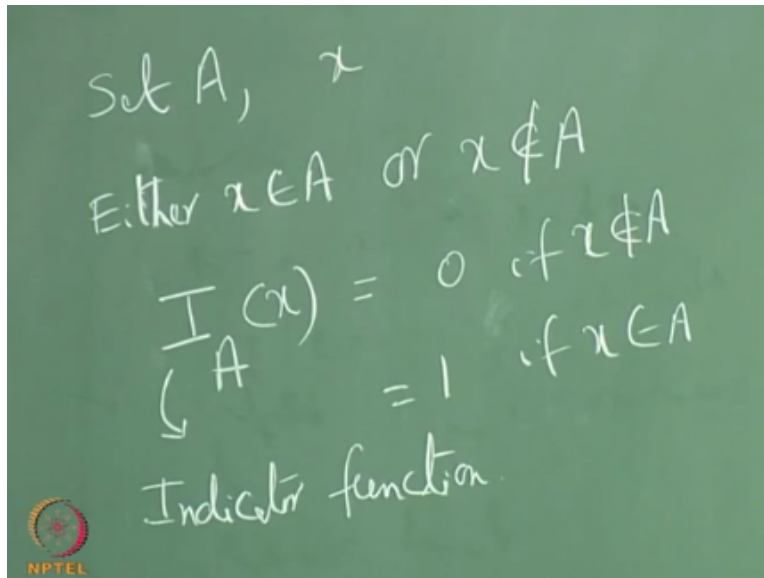 Set A, x
Either x ∈ A or x ∉ A
I_A (x) = 0 if x ∉ A
= 1 if x ∈ A
Indicator function.
NPTEL